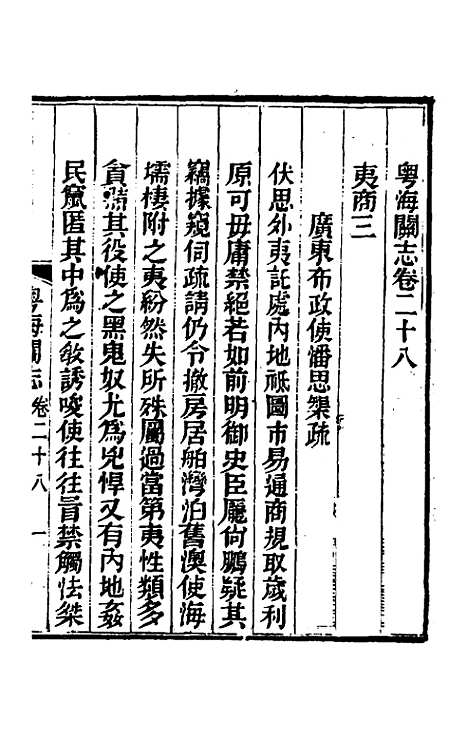 粤海關志卷二十八
夷商三
廣東布政使潘思榘疏
伏思外夷託處內地祗圖市易通商規取歲利
原可毋庸禁絕若如前明御史臣龐尚鵬疑其
竊據窺伺疏請仍令撤房居舶灣泊舊澳使海
壖棲附之夷紛然失所殊屬過當第夷性類多
貪黠其役使之黑鬼奴尤為兇悍又有內地姦
民竄匿其中為之敎誘唆使往往冒禁觸法桀
粤海關志 卷二十八 一